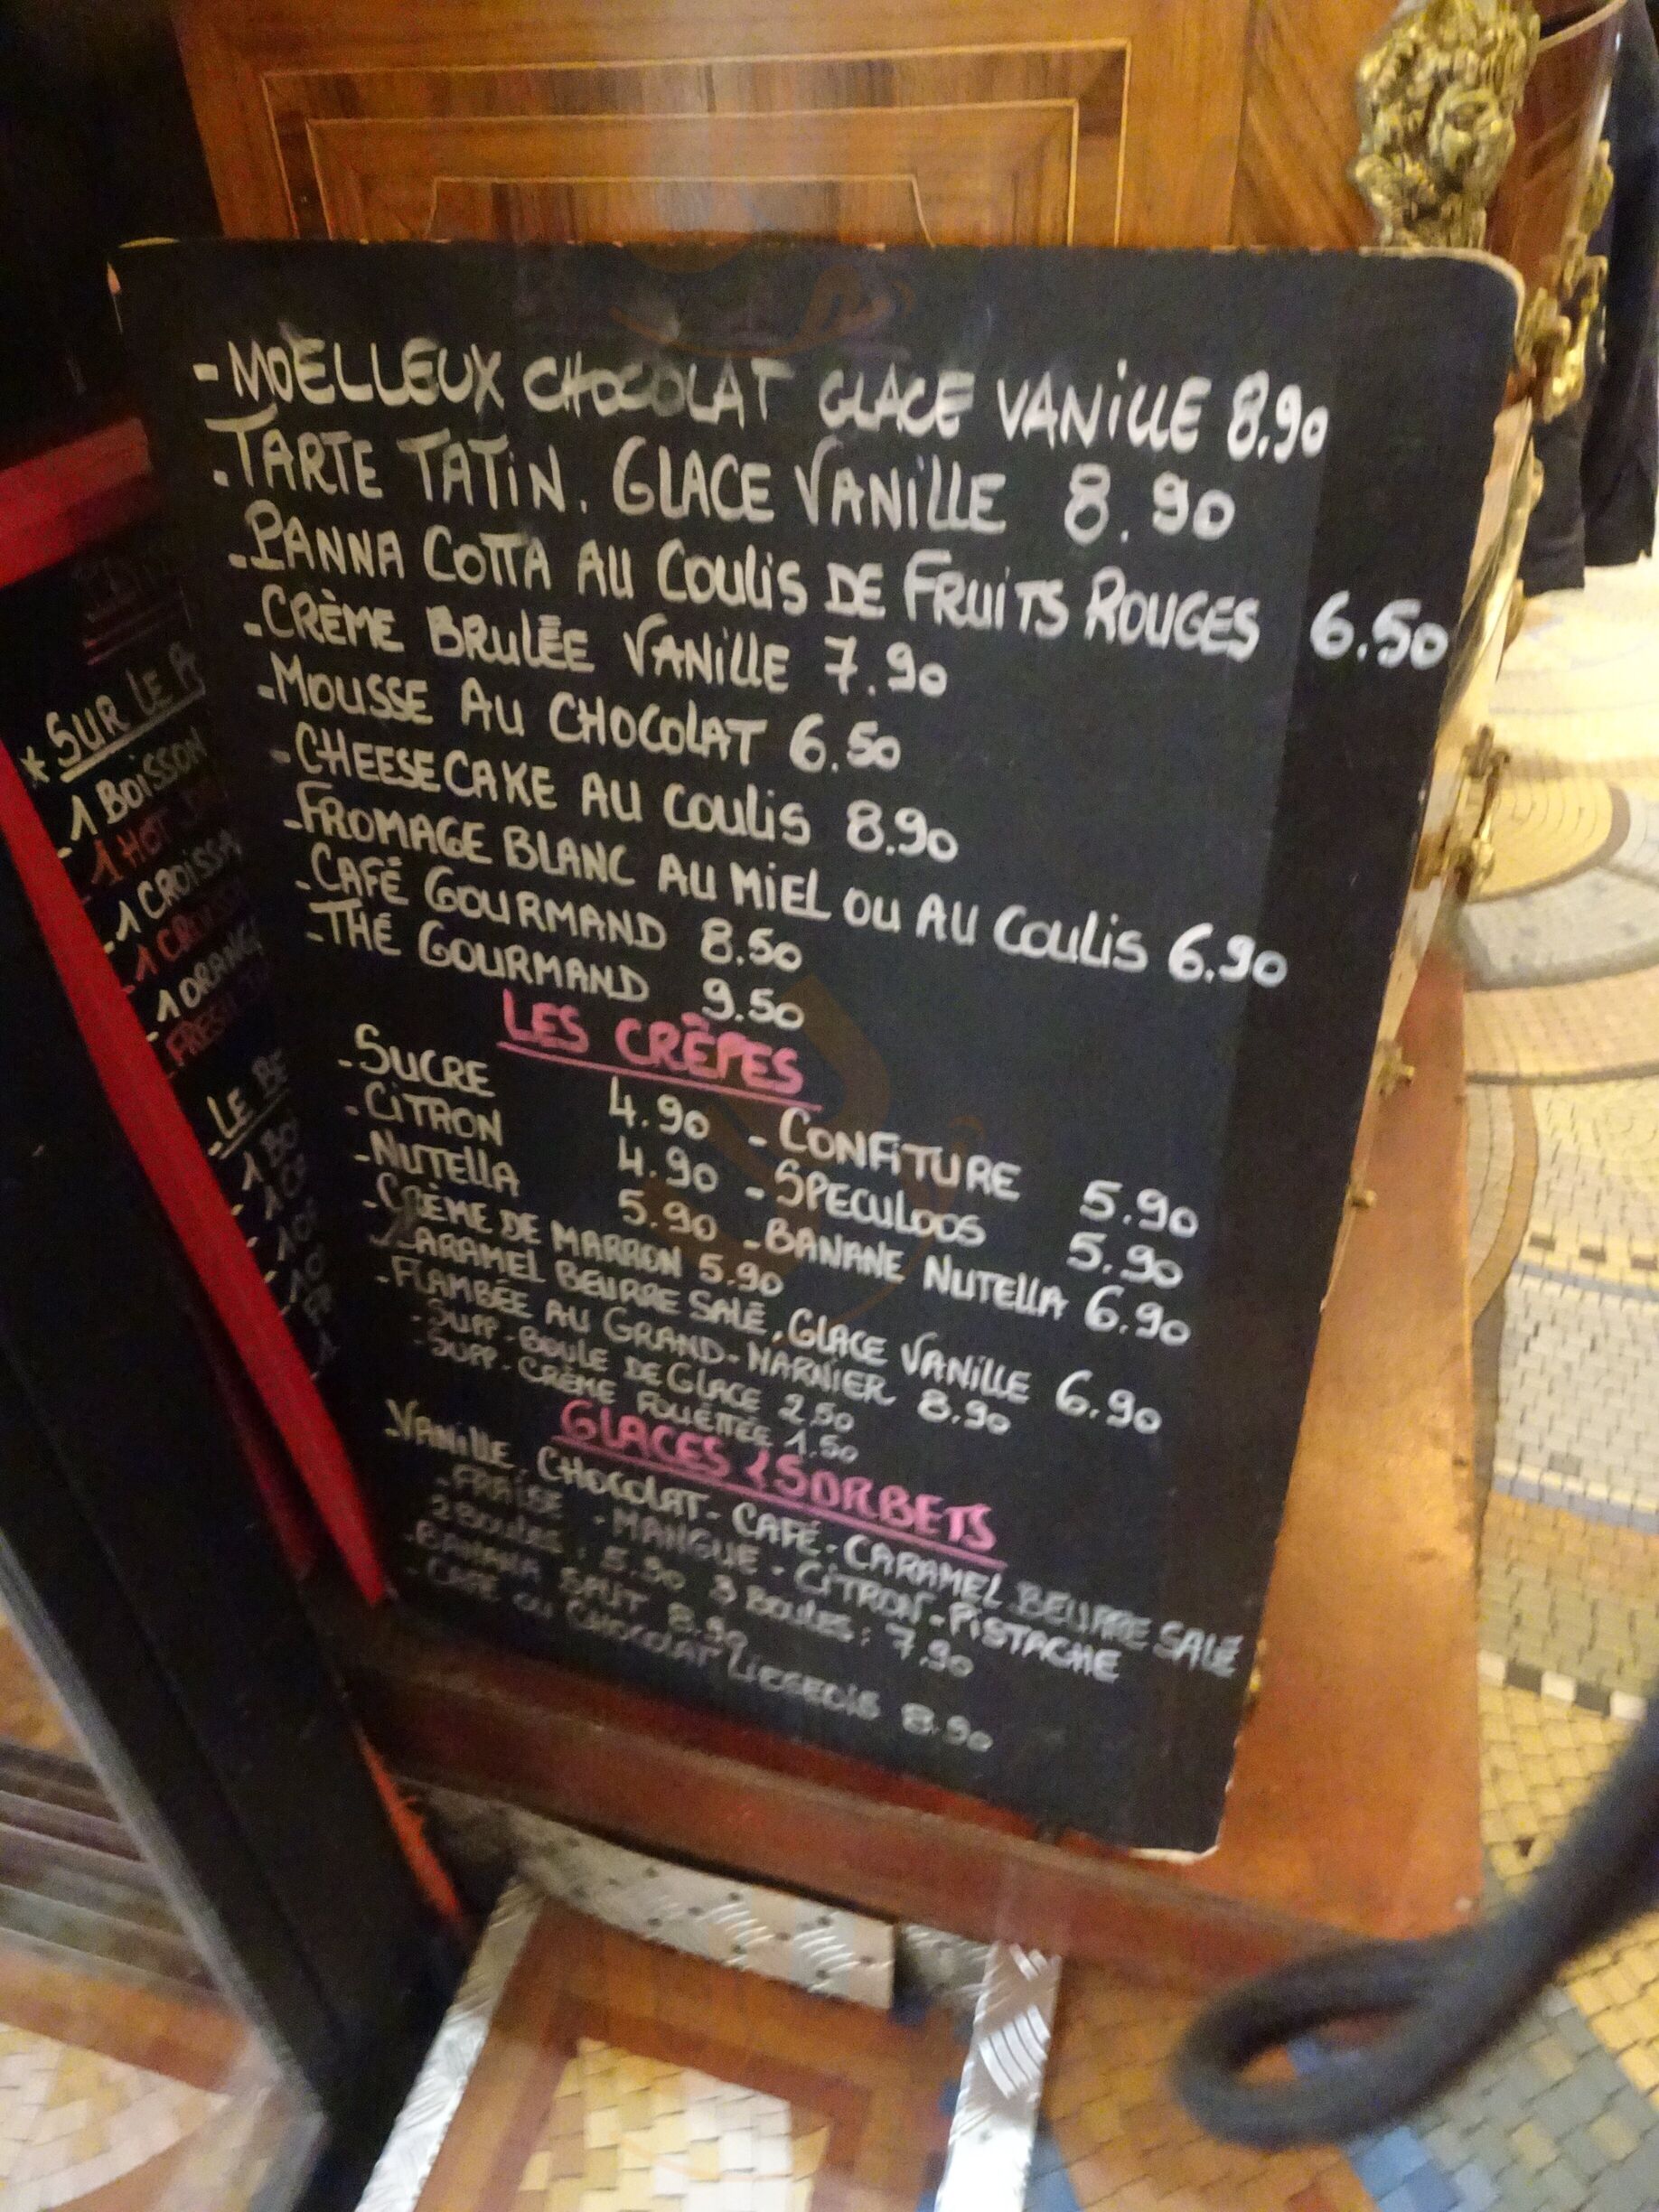 - MOËLLEUX CHOCOLAT GLACE VANILLE 8.90
- TARTE TATIN. GLACE VANILLE 8.90
- PANNA COTTA AU COULIS DE FRUITS ROUGES 6.50
- CRÈME BRULÉE VANILLE 7.90
- MOUSSE AU CHOCOLAT 6.50
- CHEESECAKE AU COULIS 8.90
- FROMAGE BLANC AU MIEL OU AU COULIS 6.90
- CAFÉ GOURMAND 8.50
- THÉ GOURMAND 9.50
LES CRÊPES
- SUCRE 4.90 - CONFITURE 5.90
- CITRON 4.90 - SPECULOOS 5.90
- NUTELLA 5.90 - BANANE NUTELLA 6.90
- CRÈME DE MARRON 5.90
- CARAMEL BEURRE SALÉ, GLACE VANILLE 6.90
- FLAMBÉE AU GRAND-MARNIER 8.90
- SUPP - BOULE DE GLACE 2,50
- SUPP - CRÈME FOUÉTTÉE 1.50
GLACES & SORBETS
- VANILLE, CHOCOLAT - CAFÉ - CARAMEL BEURRE SALÉ
- FRAISE - MANGUE - CITRON - PISTACHE
2 BOULES : 5.90 3 BOULES : 7,90
- BANANA SPLIT 8.90
- CAFÉ OU CHOCOLAT LIEGEOIS 8.90
* SUR LE
- 1 BOISSON
1 HOT
- 1 CROISSA
1 CROISSA
- 1 ORANG
FRESH
- LE